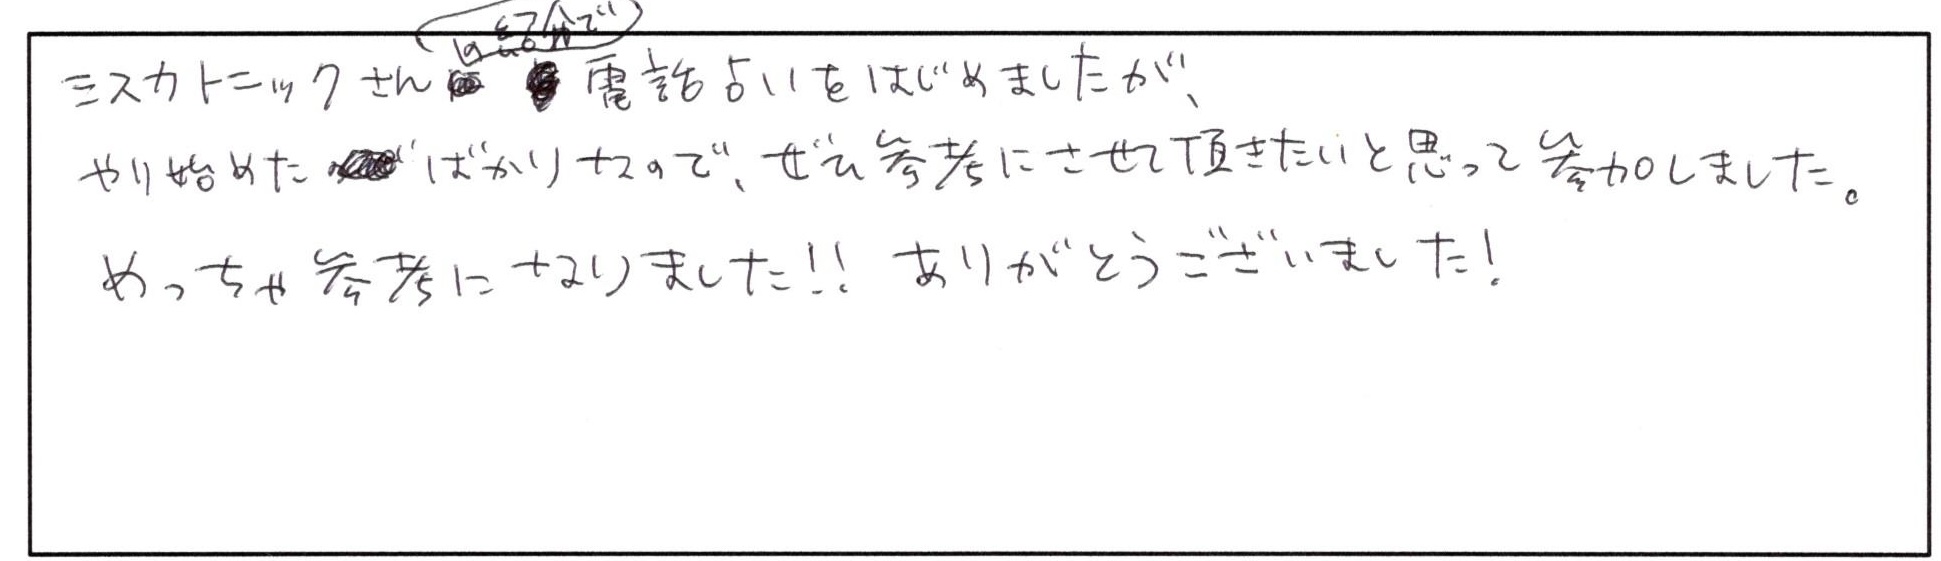 ミスカトニックさんの紹介で電話占いをはじめましたが、
やり始めたばかりなので、ぜひ参考にさせて頂きたいと思って参加しました。
めっちゃ参考になりました!! ありがとうございました!